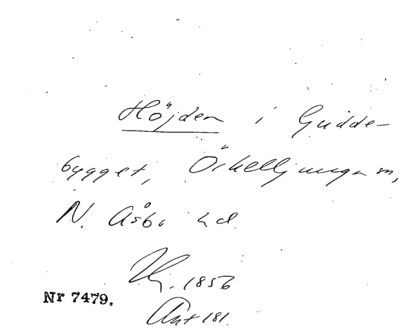 Höjden i Gudde-
bygget, Örkelljunga sn,
N. Åsbo hd
1856
Nr 7479.
Ant 181.